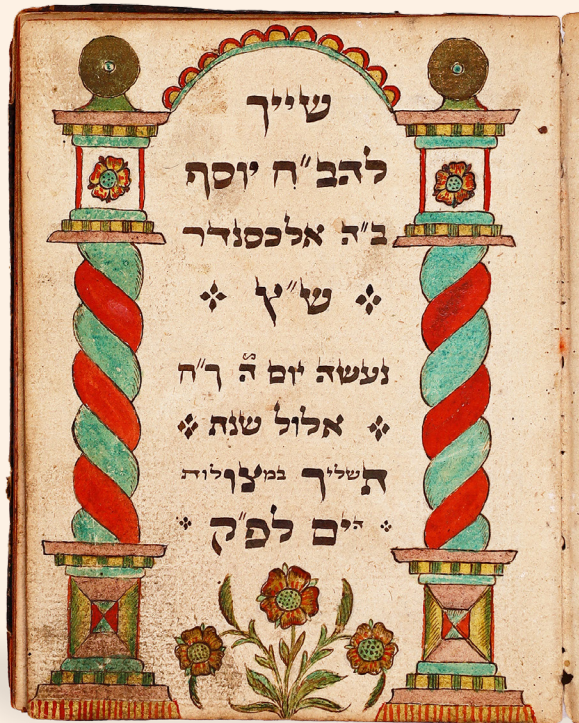 שייך
להב״ח יוסף
ב״ה אלכסנדר
ש״ץ
נעשה יום ה׳ ר״ח
אלול שנת
תשליך במצולות
הים לפ״ק